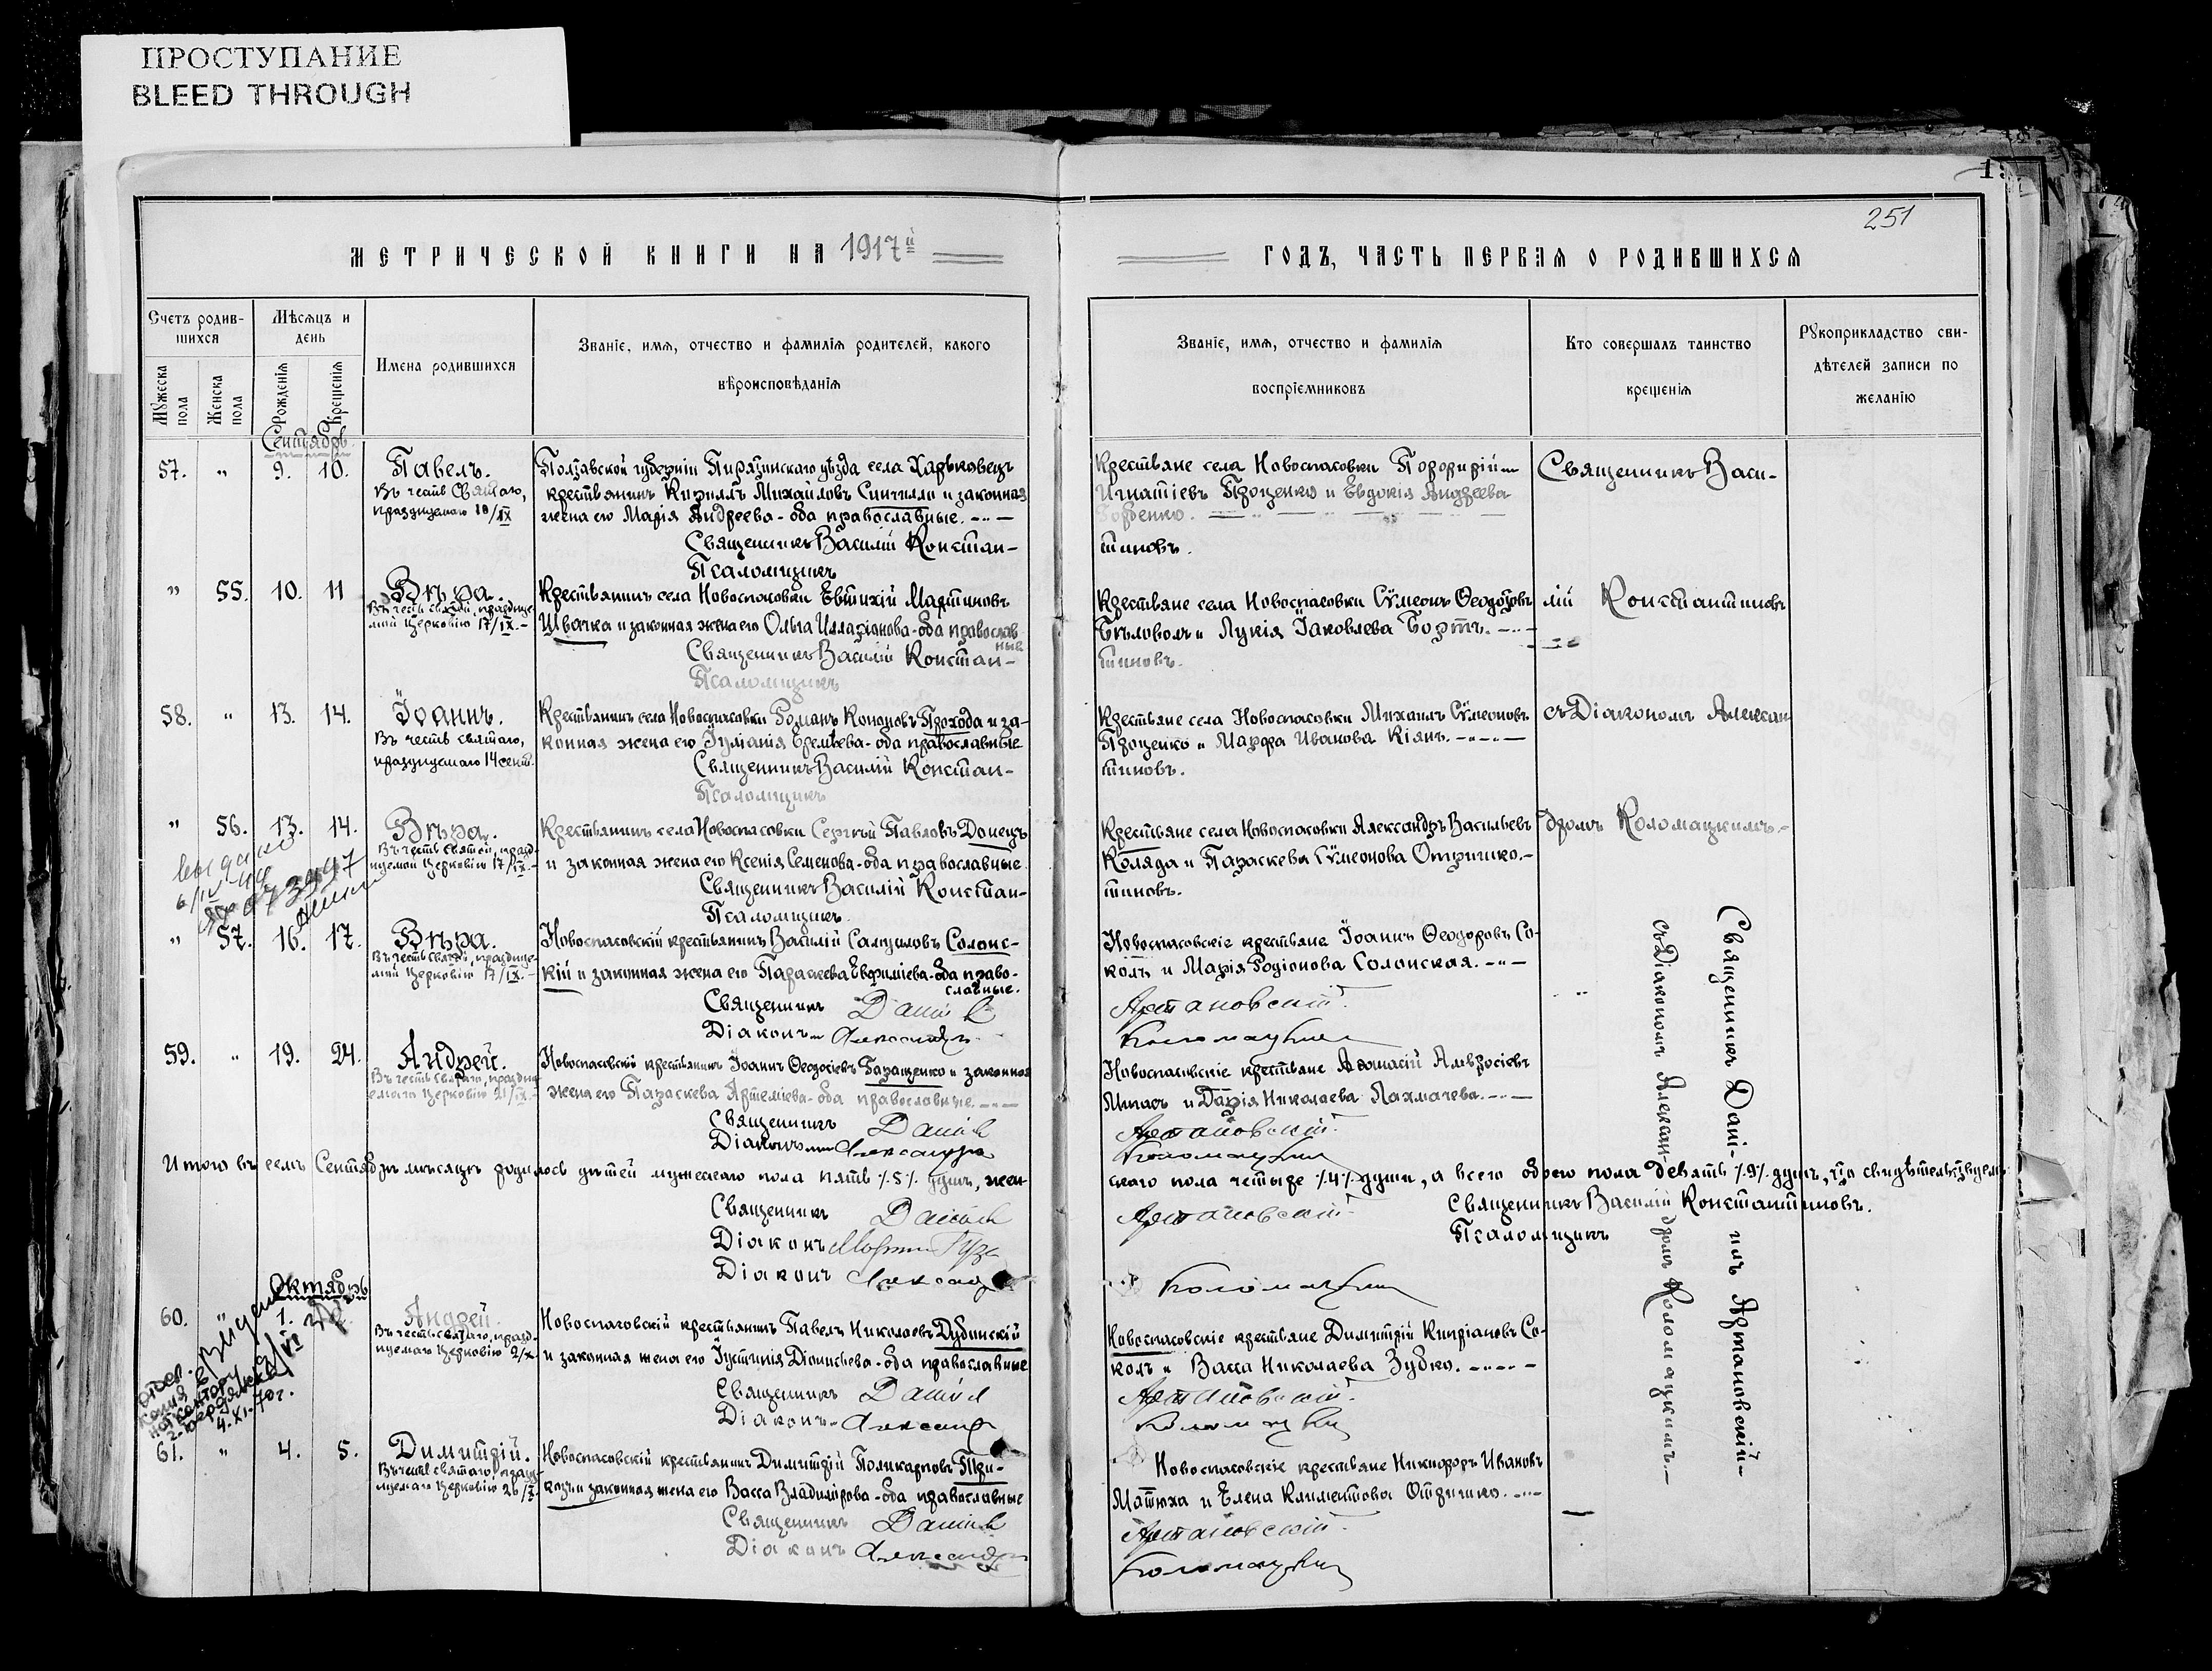 ПРОСТУПАНИЕ
BLEED THROUGH
251
МЕТРИЧЕСКОЙ КНИГИ НА 1917й
ГОДЪ, ЧАСТЬ ПЕРВАЯ О РОДИВШИХСЯ
Счетъ родив-
шихся
Мѣсяцъ и
день
Имена родившихся
Званіе, имя, отчество и фамилія родителей, какого
вѣроисповѣданія
Мужеска
пола
Женска
пола
Рожденія
Крещенія
Званіе, имя, отчество и фамилія
воспріемниковъ
Кто совершалъ таинство
крещенія
Рукоприкладство сви-
дѣтелей записи по
желанію
Сентябрь
57. " 9. 10. Павелъ.
Въ честь Святаго,
празднуемаго 10/IX
Полтавской губерніи Пирятинскаго уѣзда села Харьковецъ
крестьянинъ Кириллъ Михайловъ и законная
жена его Марія Андреева - оба православные.
Священникъ Василій Констан-
Псаломщикъ
Крестьяне села Новоспасовки Порфирій
Игнатіевъ Проценко и Евдокія Андреева
тиновъ.
Священникъ Васи-
" 55. 10. 11 Вѣра.
Въ честь святой, праздуе-
мой Церковію 17/IX.-
Крестьянинъ села Новоспасовки Евтихій Мартиновъ
Швачка и законная жена его Ольга Илларіонова - оба православ
ные
Священникъ Василій Констан-
Псаломщикъ
Крестьяне села Новоспасовки Сѵмеонъ Ѳеодотовъ
Бѣловолъ и Лукія Іаковлева Бортъ.
тиновъ.
лій Константиновъ
58. " 13. 14. Іоаннъ.
Въ честь святаго,
празднуемаго 14 сент.
Крестьянинъ села Новоспасовки Романъ Кононовъ Прохода и за-
конная жена его Іуліанія Еремѣева - оба православные
Священникъ Василій Констан-
Псаломщикъ
Крестьяне села Новоспасовки Михаилъ Сѵмеоновъ
Проценко и Марфа Иванова Кіянъ.
тиновъ.
съ Діакономъ Алексан
" 56. 13. 14. Вѣра.
Въ честь святой, празд-
нуемой Церковію 17/IX.-
Крестьянинъ села Новоспасовки Сергѣй Павловъ Донецъ
и законная жена его Ксенія Семенова - оба православные
Священникъ Василій Констан-
Псаломщикъ.
Крестьяне села Новоспасовки Александръ Васильевъ
Коляда и Параскева Сѵмеонова Отришко.-
тиновъ.
дромъ Коломацкимъ.-
" 57. 16. 17. Вѣра.
Въ честь святой, празднуе-
мой Церковію 17/IX.-
Новоспасовскій крестьянинъ Василій Самуиловъ Солонс-
кій и законная жена его Параскева Евфиміева - оба право-
славные.
Священникъ Даніил
Діаконъ Александръ
Новоспасовскіе крестьяне Іоаннъ Ѳеодоровъ Со-
колъ и Марія Родіонова Солонская.
Артановский
Коломацкий
Священникъ Даніилъ Артановскій-
съ Діакономъ Александромъ Коломацкимъ.-
59. " 19. 24. Андрей.
Въ честь святаго, праздну
емаго Церковію 21/IX.-
Новоспасовскій крестьянинъ Іоаннъ Ѳеодосіевъ Геращенко и законная
жена его Параскева Артеміева - оба православные.
Священникъ Даніил
Діаконъ Александръ
Новоспасовскіе крестьяне Аѳанасій Амвросіевъ
и Дарія Николаева Лахмачева.
Артановский
Коломацкий
Итого въ семъ Сентябрѣ мѣсяцѣ родилось дѣтей мужескаго пола пять ./.5./. душъ, жен
скаго пола четыре ./.4./. души, а всего обоего пола девять ./.9./. душъ, что свидѣтельствуемъ
Священникъ Даніил
Діаконъ
Діаконъ Александръ
Артановский
Коломацкий
Священникъ Василій Константиновъ.
Псаломщикъ
Октябрь
60. " 1. Андрей.
Въ честь святаго, празд-
нуемаго Церковію 2/X.
Новоспасовскій крестьянинъ Павелъ Николаевъ Дубинскій
и законная жена его Іустинія Діонисіева - оба православные
Священникъ Даніил
Діаконъ Александръ
Новоспасовскіе крестьяне Димитрій Кипріановъ Со-
колъ и Васса Николаева Зубко.
Артановский
Коломацкий
4.XI.70г.
61. " 4. 5. Димитрій.
Въ честь святаго, празд-
нуемаго Церковію 26/X.
Новоспасовскій крестьянинъ Димитрій Поликарповъ При-
козъ и законная жена его Васса Владимірова - оба православные
Священникъ Даніил
Діаконъ Александръ
Новоспасовскіе крестьяне Никифоръ Ивановъ
Матюха и Елена Климентова Отришко.
Артановский
Коломацкий